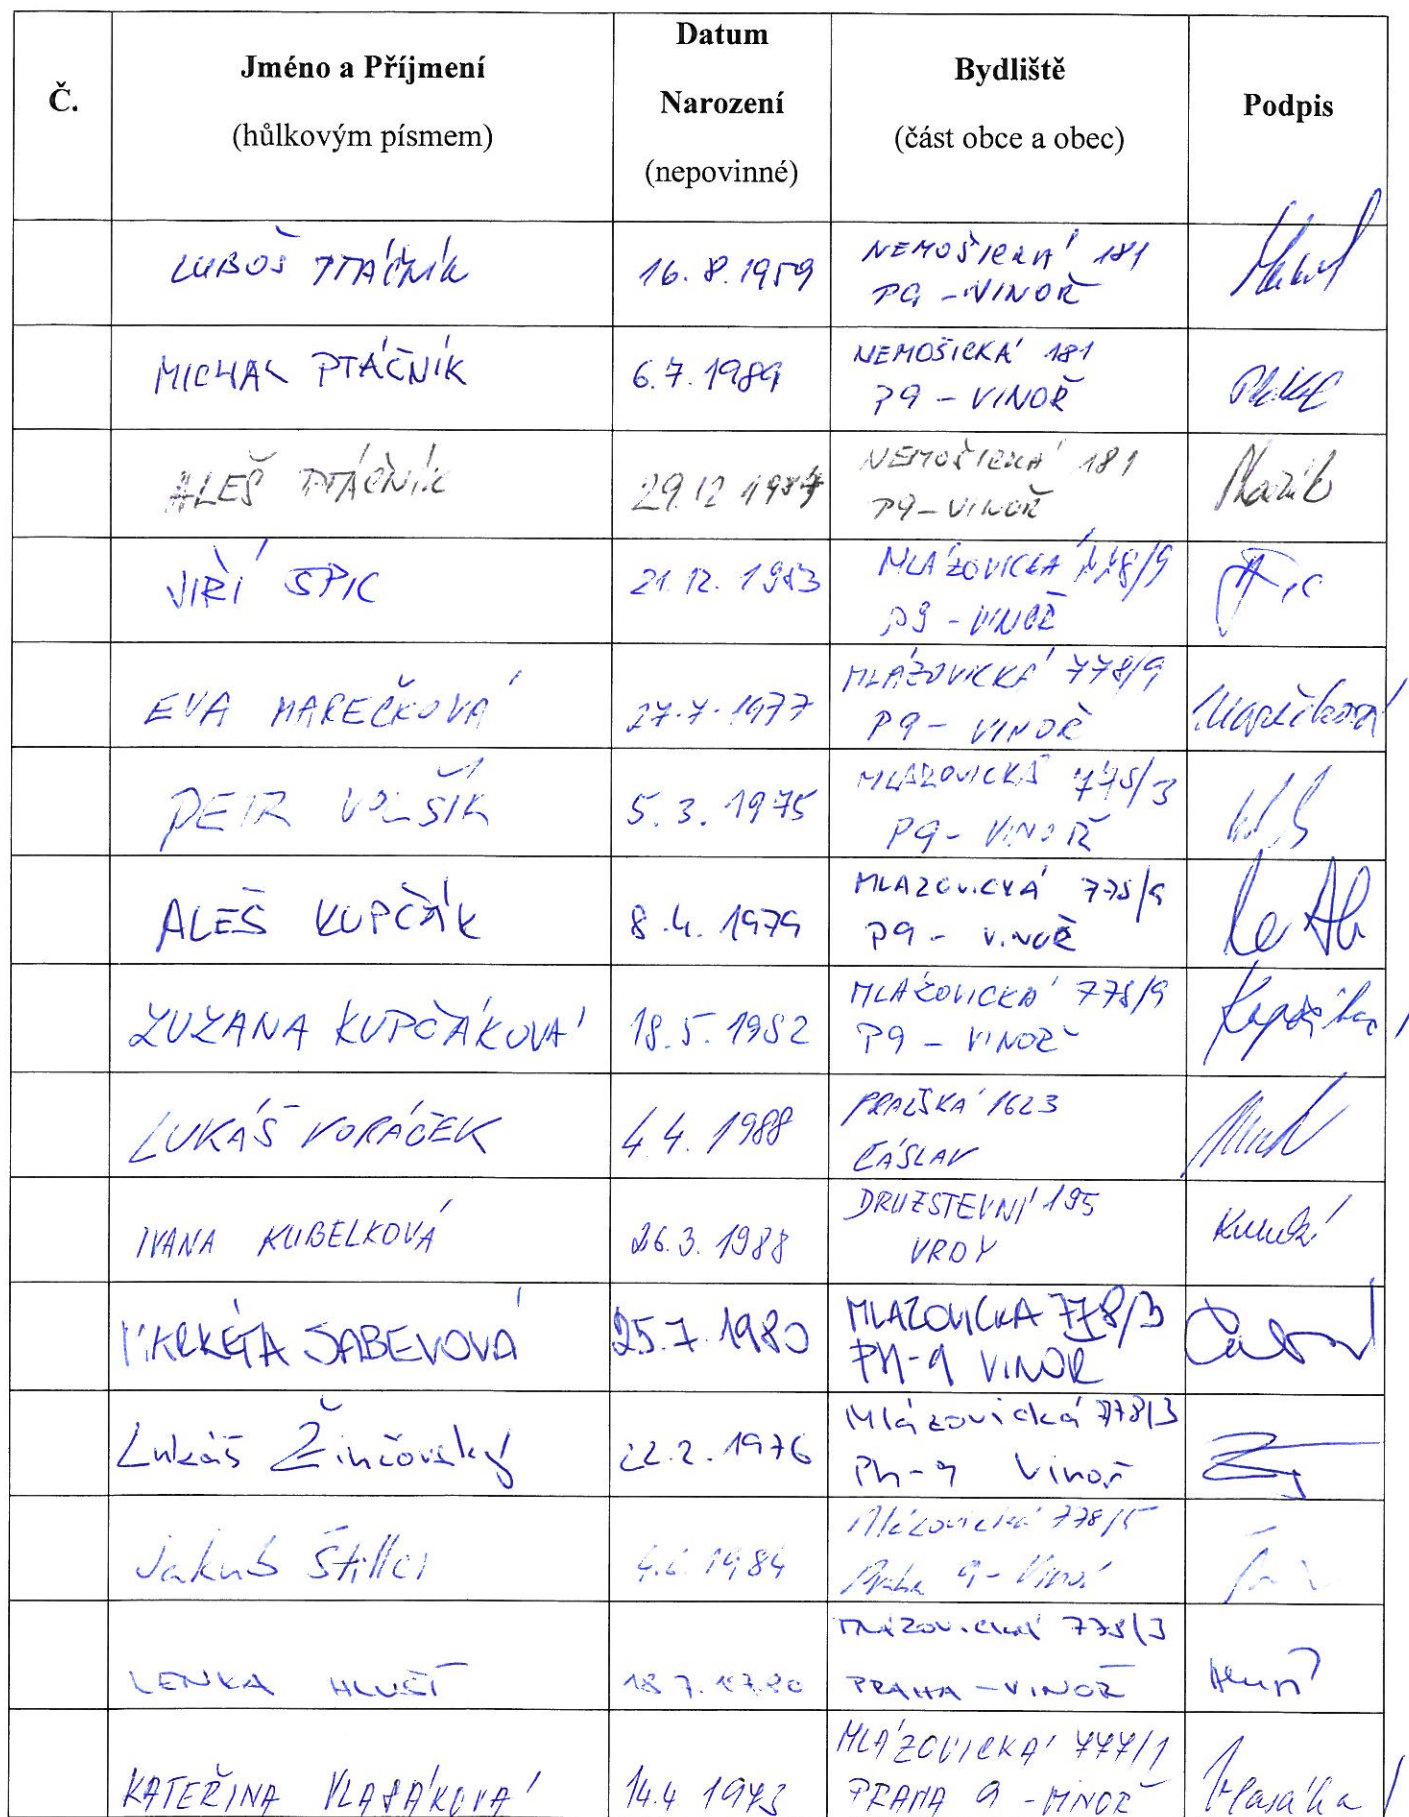 Č.
Jméno a Příjmení
(hůlkovým písmem)
Datum
Narození
(nepovinné)
Bydliště
(část obce a obec)
Podpis
LUBOŠ PTÁČNÍK 16.8.1959 NEMOŠICKÁ 181
P9 - VINOŘ
MICHAL PTÁČNÍK 6.7.1989 NEMOŠICKÁ 181
P9 - VINOŘ
ALEŠ PTÁČNÍK 29.12 NEMOŠICKÁ 181
P9 - VINOŘ
JIŘÍ 21.12.1983 MLÁZOVICKÁ 778/9
P9 - VINOŘ
EVA MAREČKOVÁ 27.7.1977 MLÁZOVICKÁ 778/9
P9 - VINOŘ
PETR VOLŠÍK 5.3.1975 MLÁZOVICKÁ
P9 - VINOŘ
ALEŠ KUPČÁK 8.4.1979 MLAZOVICKÁ 778/9
P9 - VINOŘ
ZUZANA KUPČÁKOVÁ 18.5.1982 MLÁZOVICKÁ 778/9
P9 - VINOŘ
LUKÁŠ VORÁČEK 4.4.1988 PRAŽSKÁ 1623
ČÁSLAV
IVANA KUBELKOVÁ 26.3.1988 DRUZSTEVNÍ 195
VRDY
MARKÉTA SABEVOVÁ 25.7.1980 MLAZOVICKA 778/3
PH-9 VINOR
Lukáš Žinčovský 22.2.1976 Mlázovická 778/3
Ph-9 Vinoř
Jakub Štiller 1984 Mlázovická 778/5
Praha 9 - Vinoř
LENKA 18.7. MLÁZOVICKÁ 778/3
PRAHA - VINOŘ
KATEŘINA VLASÁKOVÁ 14.4 1973 MLÁZOVICKÁ 777/1
PRAHA 9 - VINOŘ